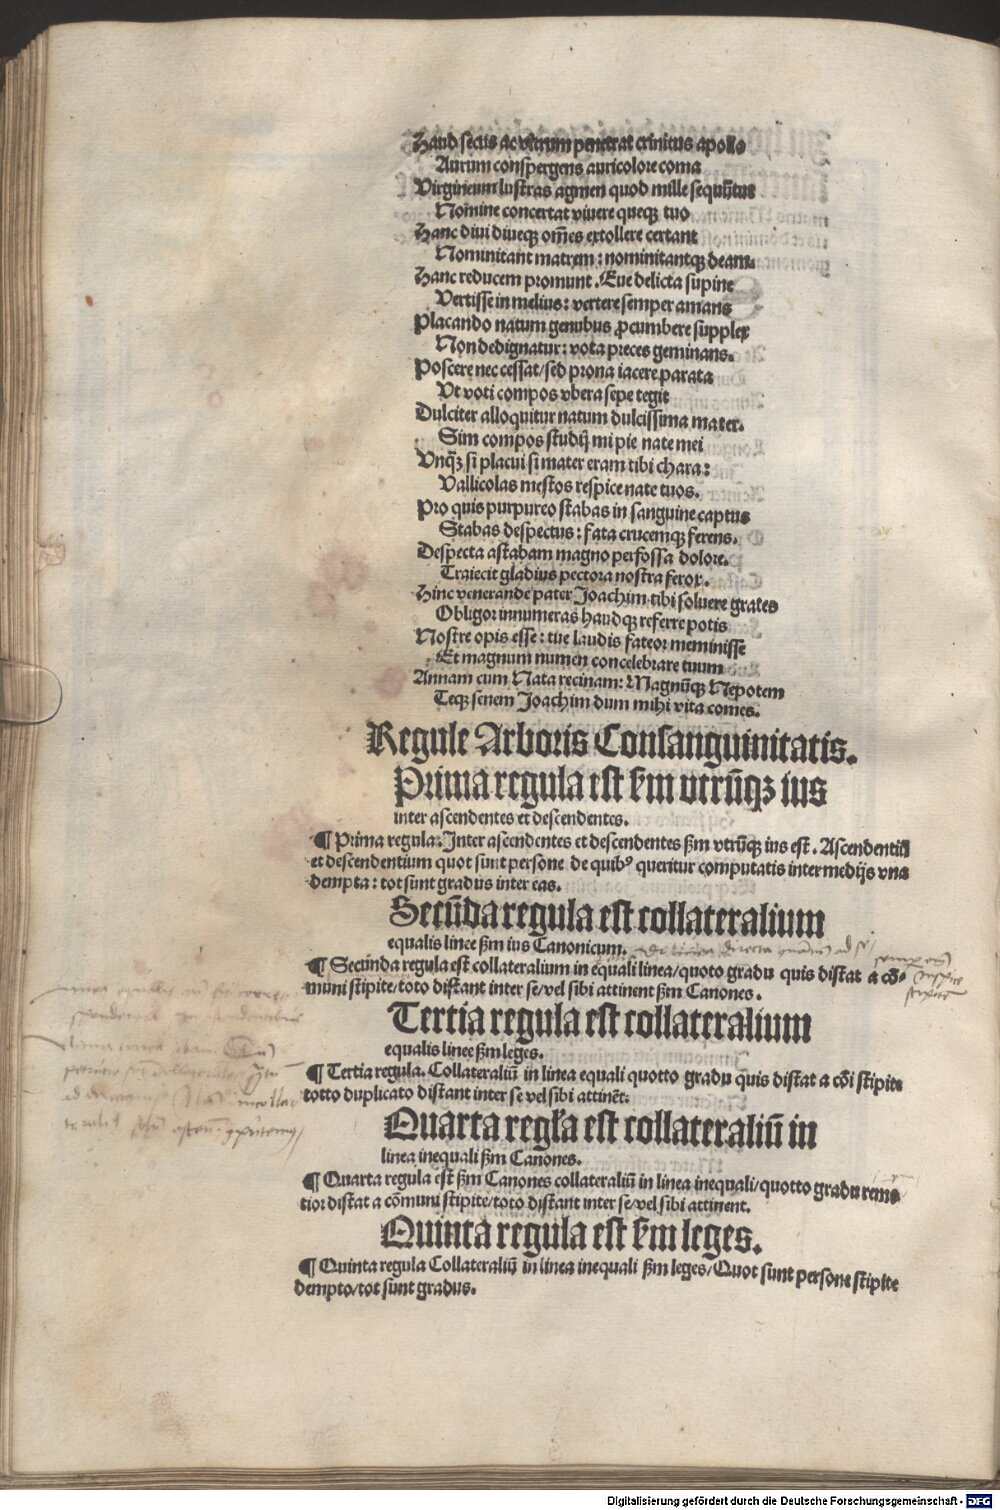 Haud secus ac vitrum penetrat crinitus apollo
Aurum conspergens auricolore coma
Virgineum lustras agmen quod mille sequūtus
Nomine concertat viuere queqꝫ tuo
Hanc diui diueqꝫ om̄es extollere certant
Nominitant matrem : nominitantqꝫ deam.
Hanc reducem promunt. Eue delicta supine
Vertisse in melius : vertere semper amans
Placando natum genubus ꝓcumbere supplex
Non dedignatur : vota preces geminans.
Poscere nec cessat/sed prona iacere parata
Vt voti compos vbera sepe tegit
Dulciter alloquitur natum dulcissima mater.
Sim compos studij mi pie nate mei
Vnq̄ꝫ si placui si mater eram tibi chara :
Vallicolas mestos respice nate tuos.
Pro quis purpureo stabas in sanguine captus
Stabas despectus : fata crucemqꝫ ferens.
Despecta astabam magno perfossa dolore.
Traiecit gladius pectora nostra ferox.
Hinc venerande pater Joachim tibi soluere grates
Obligor innumeras haudqꝫ referre potis
Nostre opis esse : tue laudis fateor meminisse
Et magnum numen concelebrare tuum
Annam cum Nata recinam: Magnūqꝫ Nepotem
Teqꝫ senem Joachim dum mihi vita comes.
Regule Arboris Consanguinitatis.
Prima regula est ẜm vtrūqꝫ ius
inter ascendentes et descendentes.
¶ Prima regula. Inter ascendentes et descendentes ẜm vtrūqꝫ ius est. Ascendentiū
et descendentium quot sunt persone de quibꝰ queritur computatis intermedijs vna
dempta : tot sunt gradus inter eas.
Secūda regula est collateralium
equalis linee ẜm ius Canonicum.
¶ Secunda regula est collateralium in equali linea/quoto gradu quis distat a cō-
muni stipite/toto distant inter se/vel sibi attinent ẜm Canones.
Tertia regula est collateralium
equalis linee ẜm leges.
¶ Tertia regula. Collateraliū in linea equali quotto gradu quis distat a cōi stipite
totto duplicato distant inter se vel sibi attinēt.
Quarta regl̄a est collateraliū in
linea inequali ẜm Canones.
¶ Quarta regula est ẜm Canones collateraliū in linea inequali/quotto gradu remo
tior distat a cōmuni stipite/toto distant inter se/vel sibi attinent.
Quinta regula est ẜm leges.
¶ Quinta regula Collateraliū in linea inequali ẜm leges/Quot sunt persone stipite
dempto/tot sunt gradus.
Digitalisierung gefördert durch die Deutsche Forschungsgemeinschaft - DFG